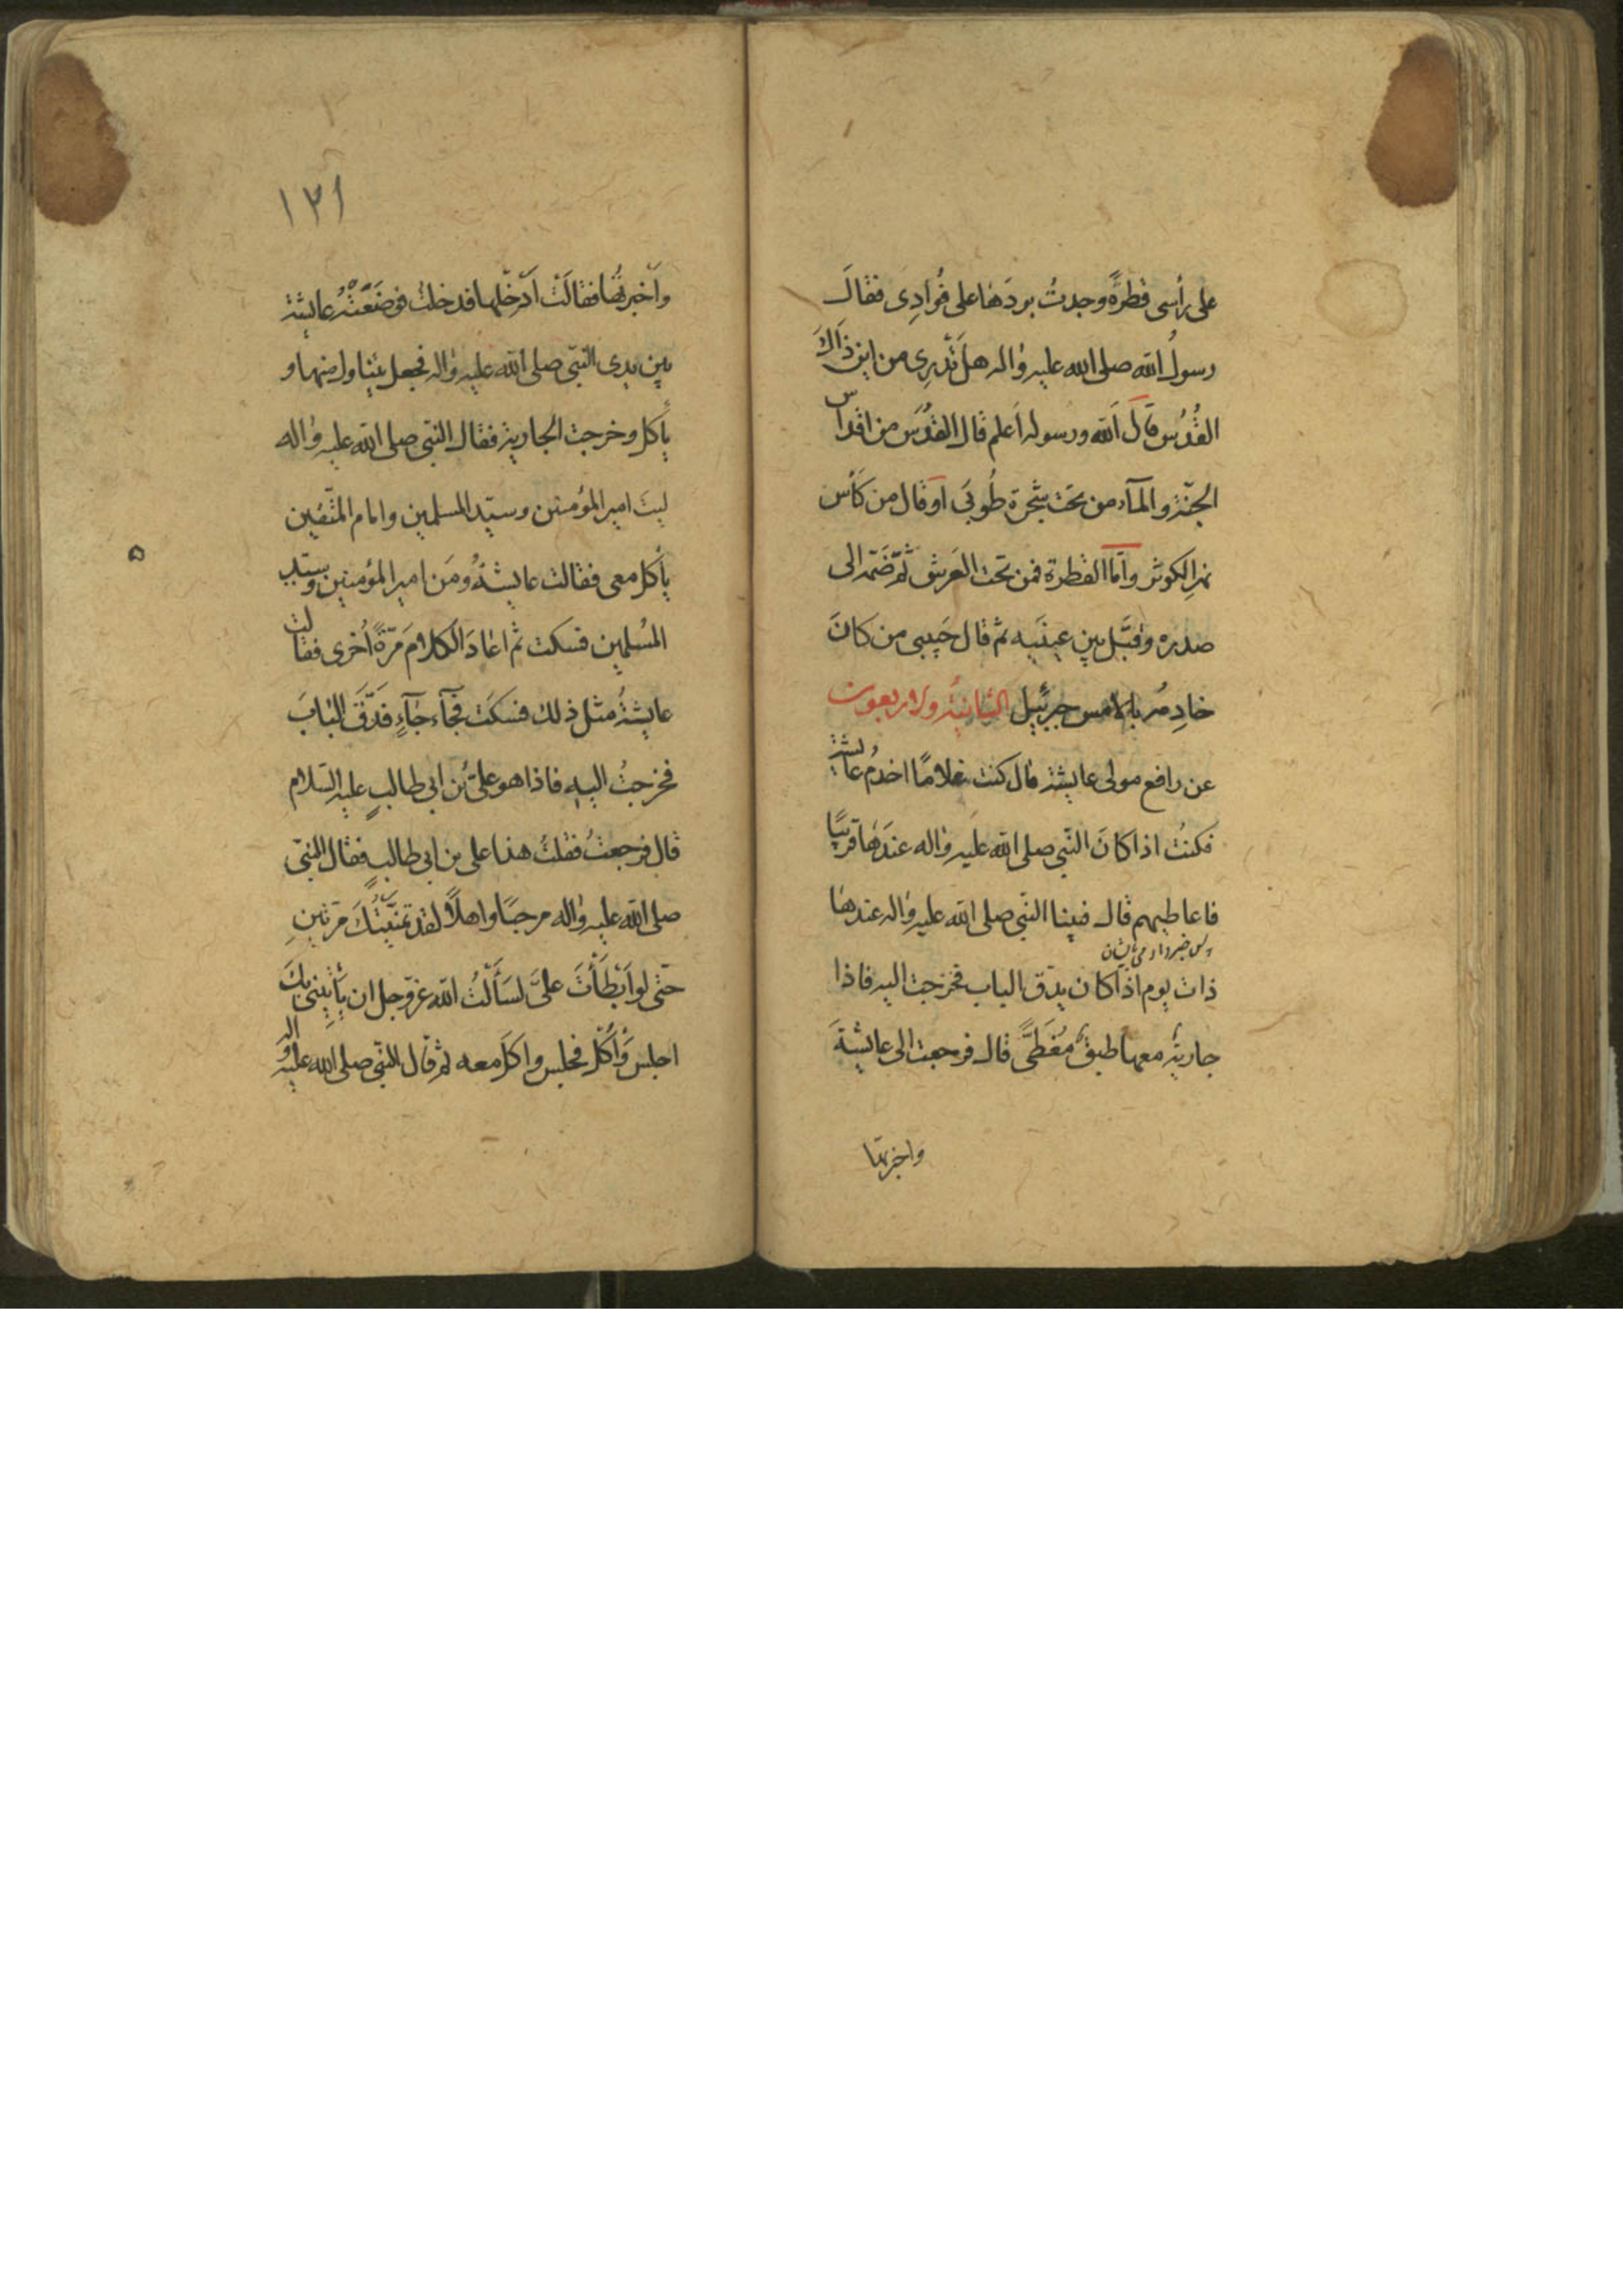 على رأسى قطرةً وجدتُ بردَها على فُوادِى فقالَ
رسولُ الله صلى الله عليه واله هل تَدرِى من اين ذَاكَ
القُدُس قالَ اَلله ورسوله اَعلم قال القُدُس من اقداس
الجنّة والمآء من تحت شجرة طُوبىَ او قال من كَأس
نهرِ الكوثر وامّا القطرة فمن تحت العَرش ثمّ ضَمّه الى
صدره وقبَّل بين عينَيه ثم قال حَبيبى من كانَ
خادِمُه بالامس جبرئيل الثانيةُ ولاربعون
عن رافع مولى عايشة قال كنت غلامًا اخدُم عايشة
فكنتُ اذا كانَ النّبى صلى الله عليه واله عندَها قريبًا
فاعاطيهم قال فبينا النبى صلى الله عليه واله عندها
ذات يوم اذا كان يدّق الباب فخرجت اليه فاذا
جارية معها طبقٌ مُغَطًّى قال فرجعت الى عايشةَ
واخبرتها
١٣١
واَخبرتُها فقالَت اَدخِلها فدخلت فوضَعَتْهُ عايشة
بين يدى النّبى صلى الله عليه واله فجعل يتناول منها و
يأكل وخرجت الجارية فقال النبى صلى الله عليه واله
ليت امير المؤمنين وسيّد المسلمين وامام المتّقين
يأكل معى فقالت عايشةُ ومَن امير المؤمنين وسيّد
المُسلمين فسكت ثم اعادَ الكلامَ مَرّةً اُخرى فقالت
عايشةُ مثل ذلك فسكَت فجآء جآءٍ فدَقّ البابَ
فخرجتُ اليه فاذا هو علىُّ بن ابى طالبٍ عليه السّلام
قال فرجعتُ فقلتُ هذا على بن ابى طالب فقال النبّى
صلى الله عليه واله مرحبًا واهلًا لقد تمنّيتُكَ مرّتينِ
حتّى لو اَبْطَأْتَ علىَّ لسَأَلتُ الله عزّوجل ان يَأتِينى بكَ
اجلس وَاَكُل فجلس واكلَ معه ثمّ قال النّبى صلى الله عليه واله